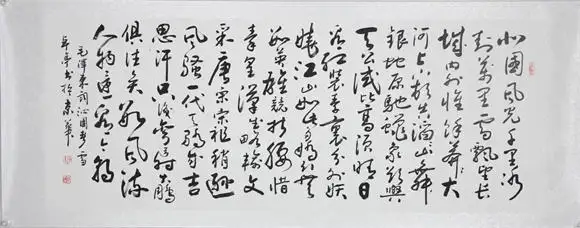 北國風光千里冰
封萬里雪飄望長
城内外惟餘莽大
河上下頓失滔山舞
銀蛇原馳蠟象欲與
天公試比高須晴日
看紅裝素裹分外妖
嬈江山如此多嬌引無
數英雄競折腰惜
秦皇漢武略輸文
采唐宗宋祖稍遜
風騷一代天驕成吉
思汗只識彎弓射大鵰
俱往矣數風流
人物還看今朝
毛澤東詞沁園春雪
亭書於京華